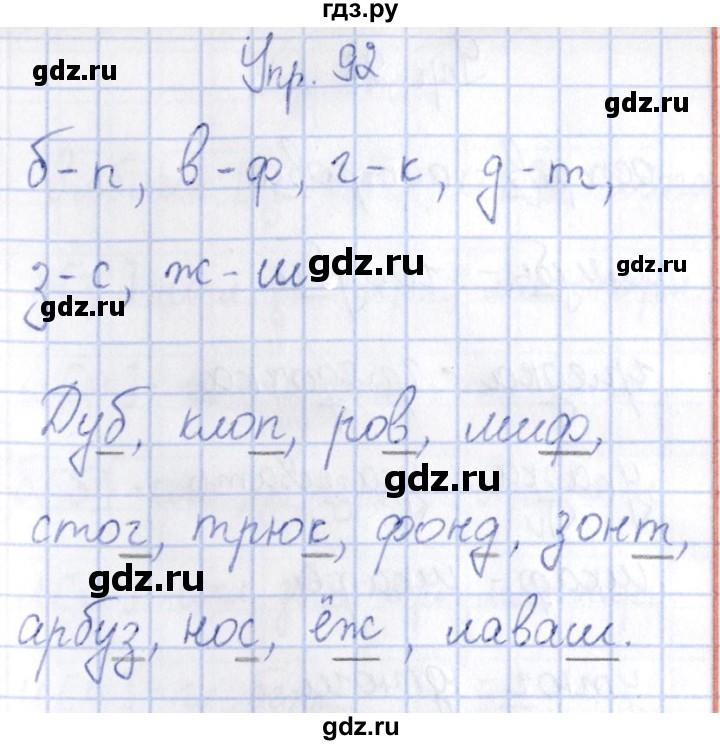 гдз.ру
Упр. 92
gdz.ru
gdz.ru
б-п, в-ф, г-к, д-т,
з-с, ж-ш
gdz.ru
gdz.ru
gdz.ru
Дуб, клоп, ров, миф,
gdz.ru
стог, трюк, фонд, зонт,
gdz.ru
арбуз, нос, ёж, лаваш.
gdz.ru